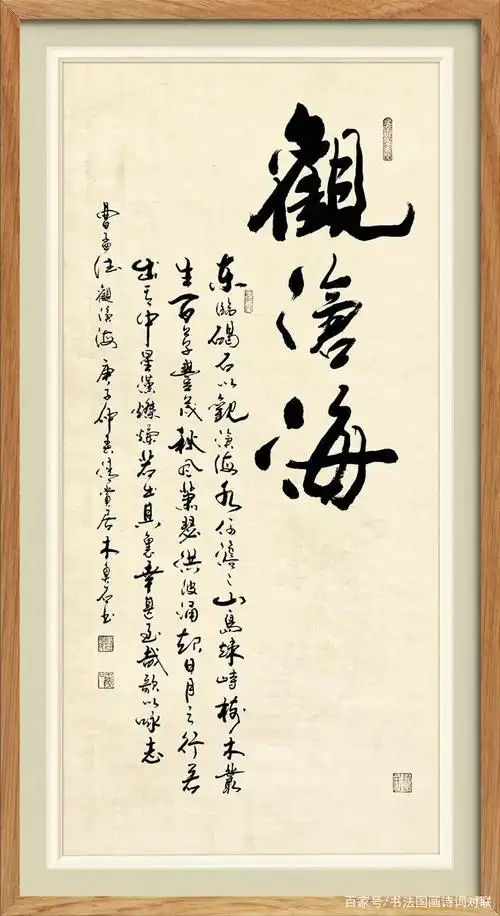 觀滄海
东临碣石以觀滄海水何澹〻山島竦峙树木叢
生百草豐茂秋风蕭瑟洪波涌起日月之行若
出其中星漢燦爛若出其裏幸甚至哉歌以咏志
曹孟德觀滄海庚子仲春清賞居木魚石书
百家号/书法国画诗词对联